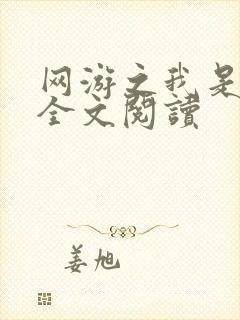 网游之我是
全文閱讀
姜旭